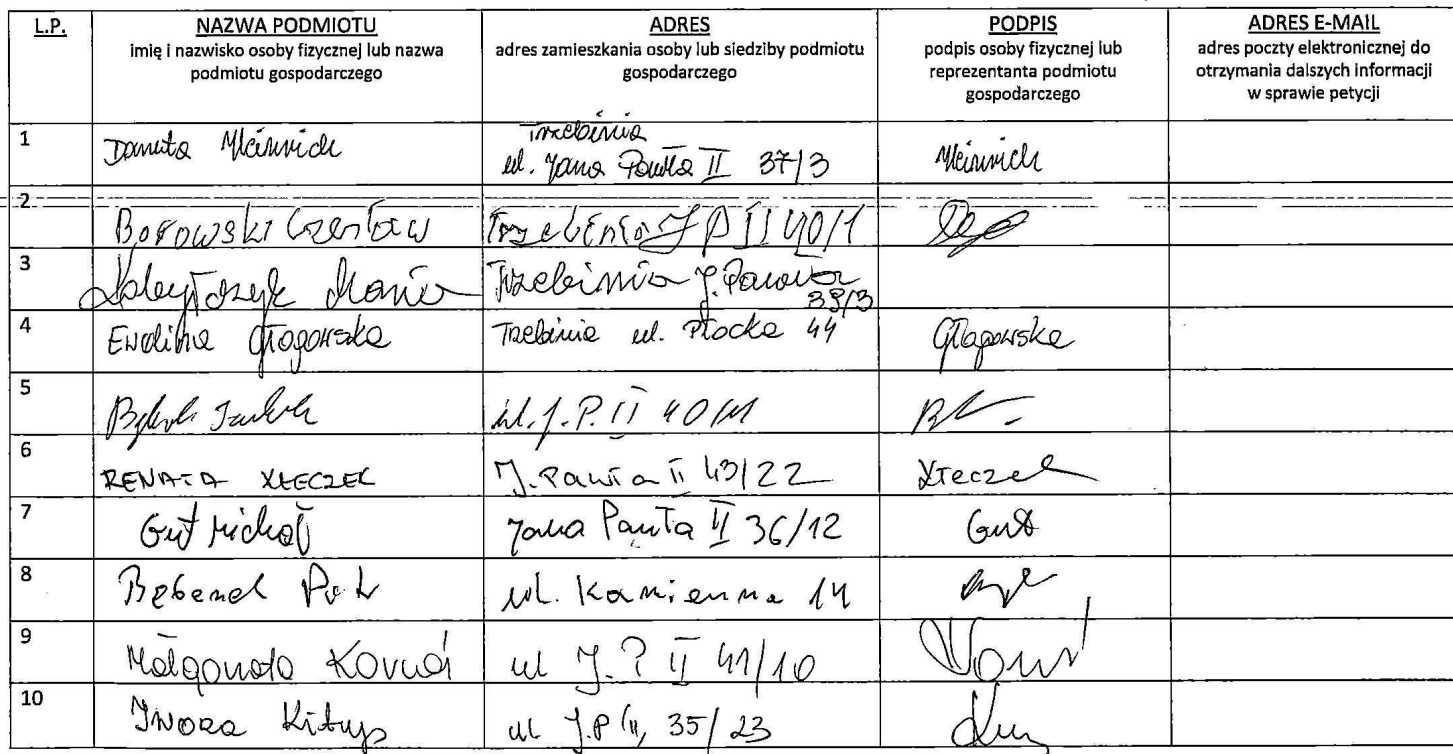 L.P. NAZWA PODMIOTU ADRES PODPIS ADRES E-MAIL
imię i nazwisko osoby fizycznej lub nazwa podmiotu gospodarczego
adres zamieszkania osoby lub siedziby podmiotu gospodarczego
podpis osoby fizycznej lub reprezentanta podmiotu gospodarczego
adres poczty elektronicznej do otrzymania dalszych informacji w sprawie petycji
1 Danuta Trzebinia
ul. Jana Pawła II 37/3
2 Borowski Czesław Trzebinia J P II 40/1
3 Maria Trzebinia J. Pawła
39/3
4 Ewelina Głogowska Trzebinia ul. Płocka 44 Głogowska
5 ul. J. P. II 40/11
6 RENATA XŁECZEK J. Pawła II 43/22 Xłeczek
7 Gut Michał Jana Pawła II 36/12 Gut
8 Bębenek ul. Kamienna 14
9 Małgorzata ul J. P II 41/10
10 Iwona ul J.P II, 35/23